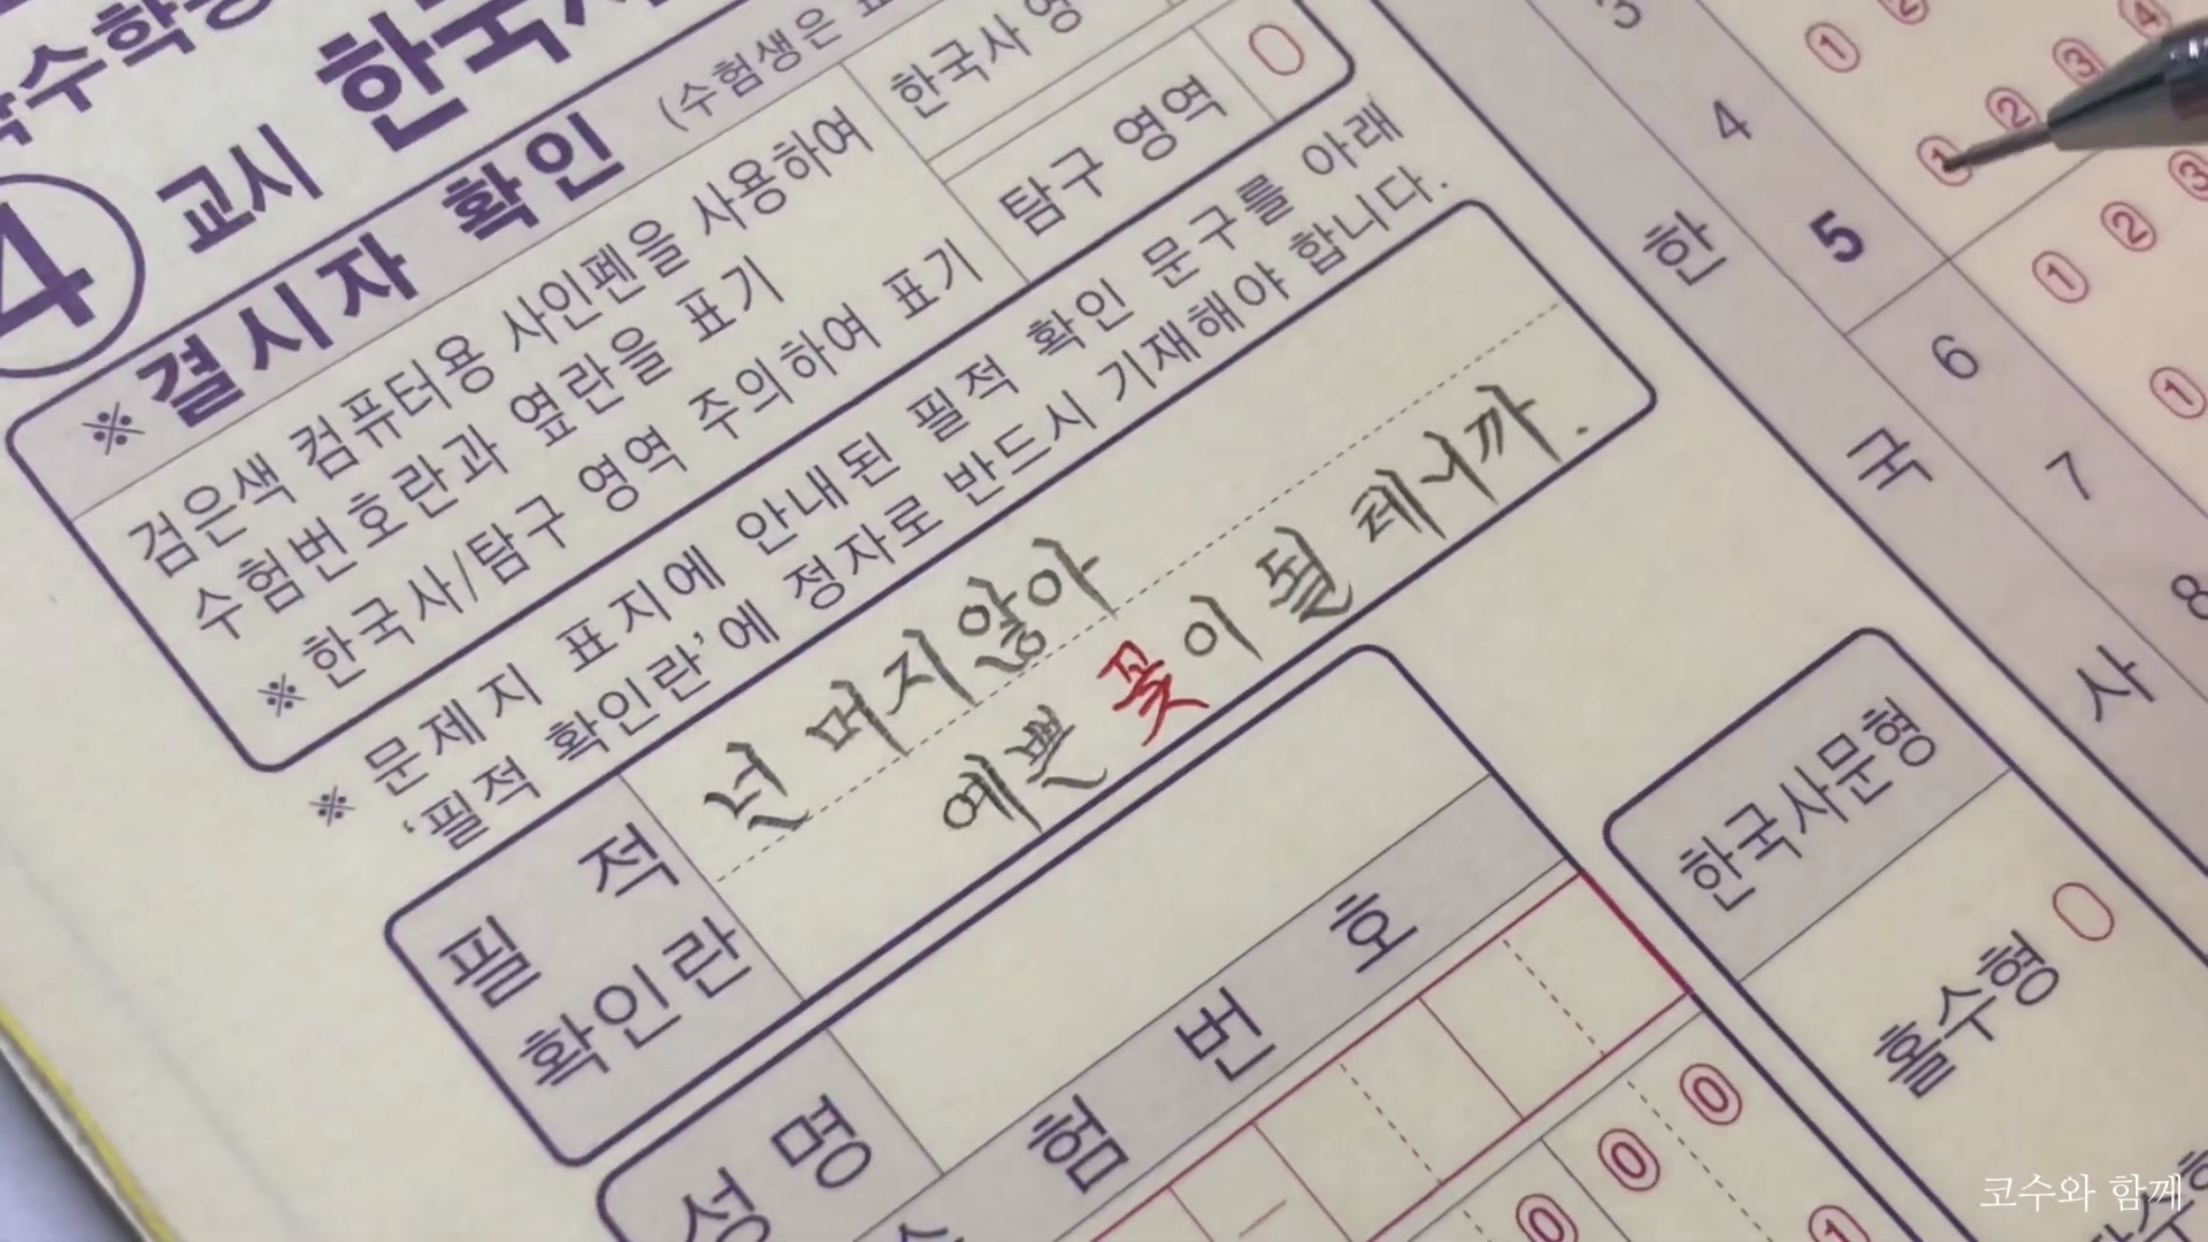 수학능
4 교시 한국사
※ 결시자 확인 (수험생은 표
검은색 컴퓨터용 사인펜을 사용하여
수험번호란과 옆란을 표기
※ 한국사/탐구 영역 주의하여 표기
한국사 영
탐구 영역
※ 문제지 표지에 안내된 필적 확인 문구를 아래
‘필적 확인란’에 정자로 반드시 기재해야 합니다.
필적
확인란
넌 머지않아
예쁜 꽃이 될 테니까.
성명
수험번호
0 0 0
1
한국사문형
홀수형
짝수형
한국사
3
4 1 2 3 4
5 1 2 3
6 1 2
7 1
8
코수와 함께